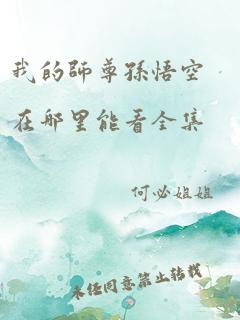 我的師尊孫悟空
在哪里能看全集
何必姐姐
未经同意禁止转载